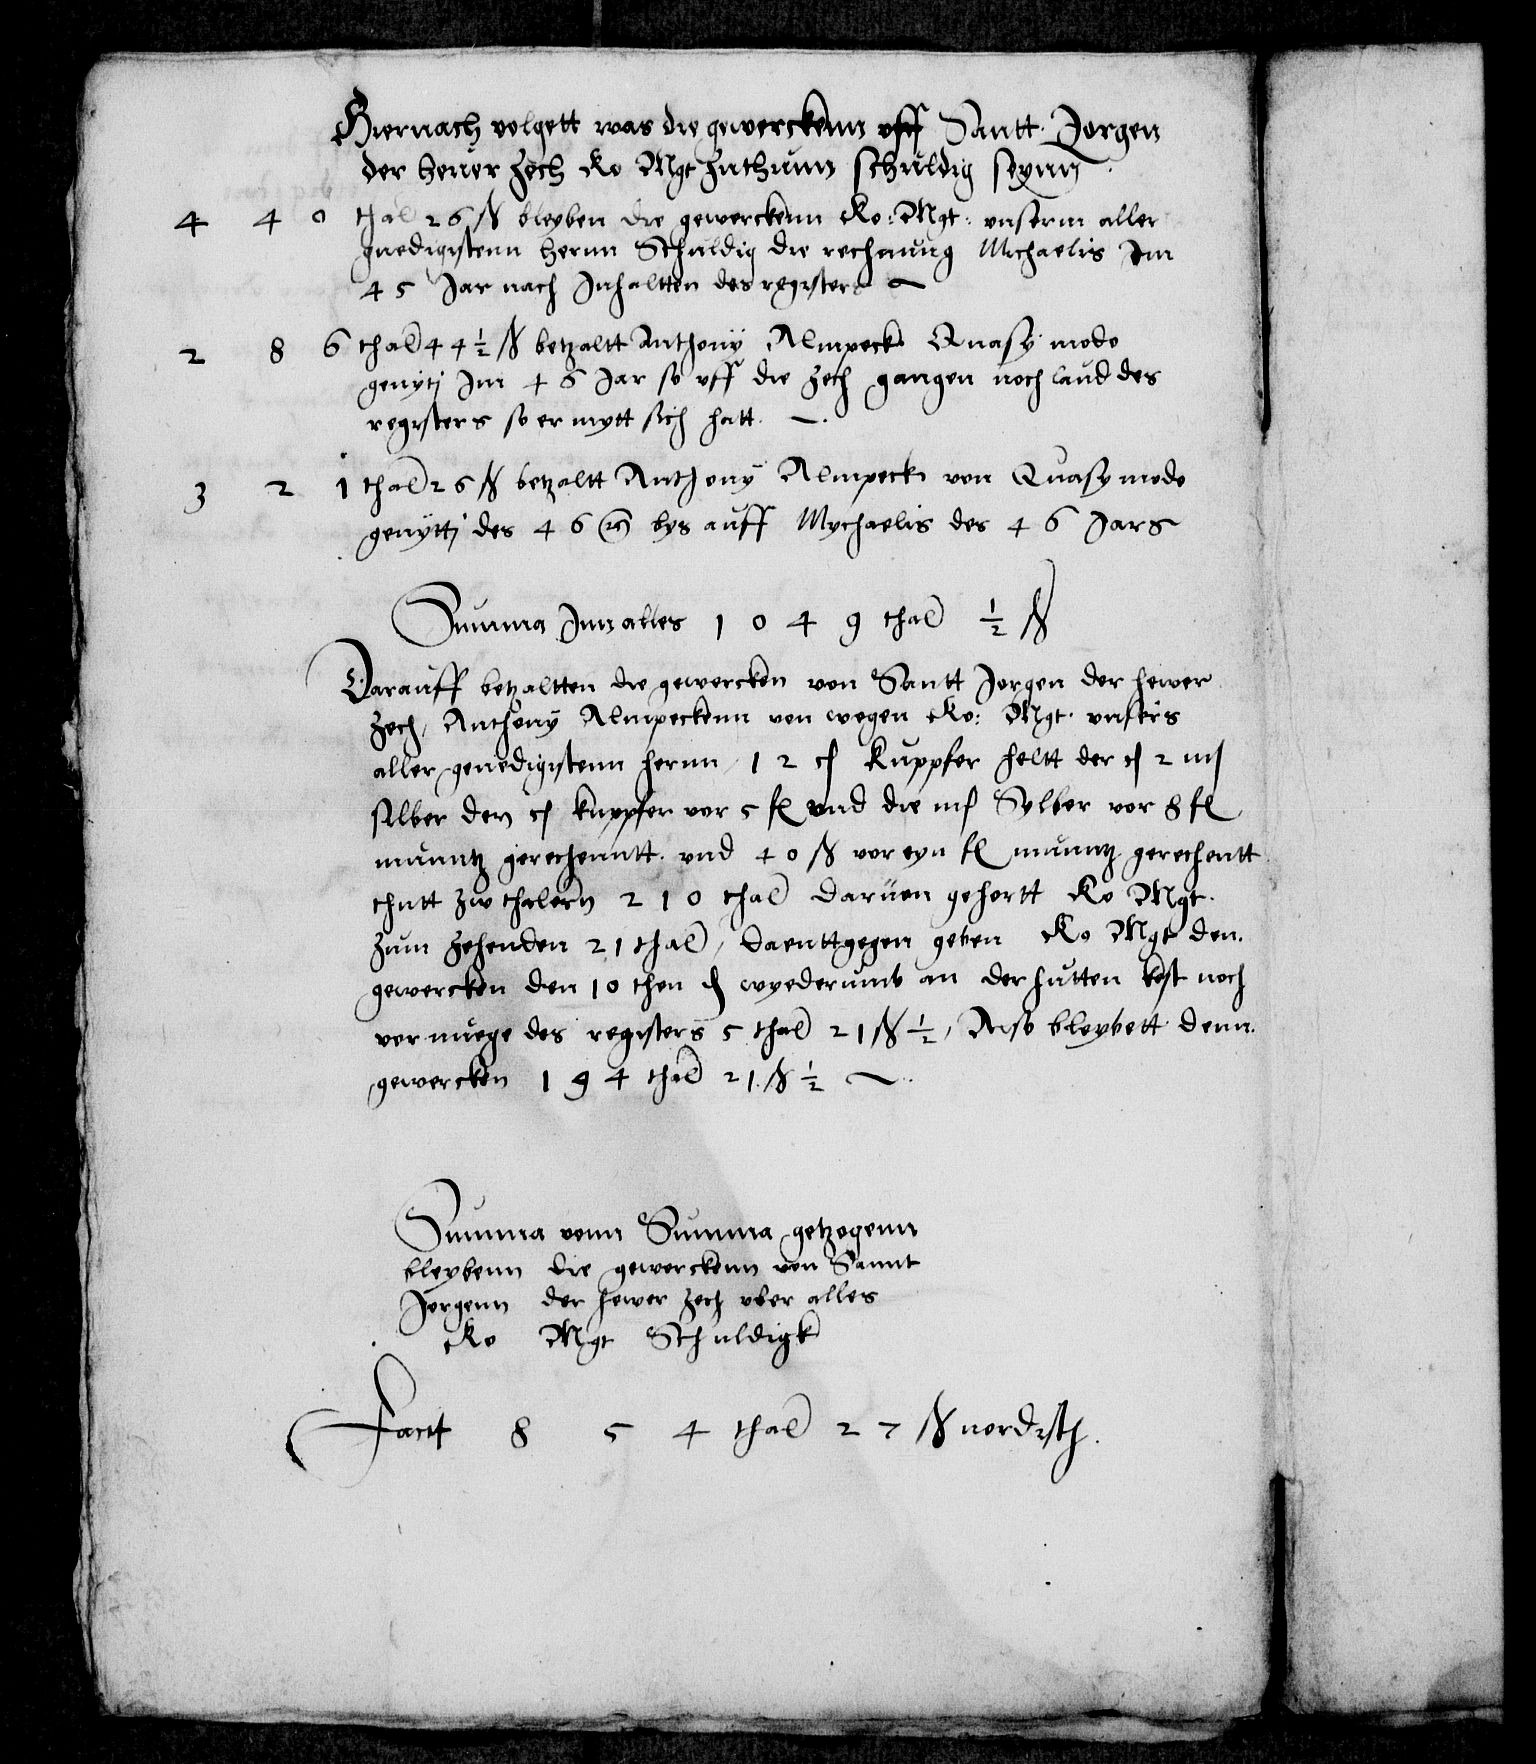 Hiernach volgett was die gewerckenn vff Santt Jorgen
der heuer zech Ko Mgt zuthunn schuldig seynn
4 4 0 thal 26 ß bleyben die gewerckenn Ko: Mgt: vnserm aller
gnedigistenn hernn Schuldig die rechnung Michaelis Im
45 Jar nach Inhaltten des registers
2 8 6 thal 44 ½ ß betzaltt Anthony Almpeck Quasy modo
genytj Im 46 Jar so vff die zech gangen noch laud des
registers so er mytt sich hatt
3 2 1 thal 26 ß betzaltt Anthony Almpeck von Quasy modo
genyttj des 46 bys auff Mychaelis des 46 Jars
Summa Inn alles 1 0 4 9 thal ½ ß
Darauff betzaltten die gewercken von Santt Jorgen der hewer
zech, Anthony Almpeckenn von wegen Ko: Mgt vnsers
aller genedigistenn hernn, 12 c Kuppfer heltt der c 2 m
silber den c kuppfer vor 5 fl vnd die m Sylber vor 8 fl
muuntz gerechenntt vnd 40 ß vor eyn fl muuntz gerechentt
thutt zw thalern 210 thal daruon gehortt Ko Mgt
zum zehenden 21 thal, daenttgegen geben Ko Mgt den
gewercken den 10 then d wyederumb an der hutten kost noch
vermuege des registers 5 thal 21 ß ½, Also bleybett denn
gewercken 194 thal 21 ß ½
Summa vonn Summa getzogenn
bleybenn die gewerckenn von Sannt
Jorgenn der hewer zech vber alles
Ko Mgt Schuldigk
Facit 8 5 4 thal 27 ß nordisch